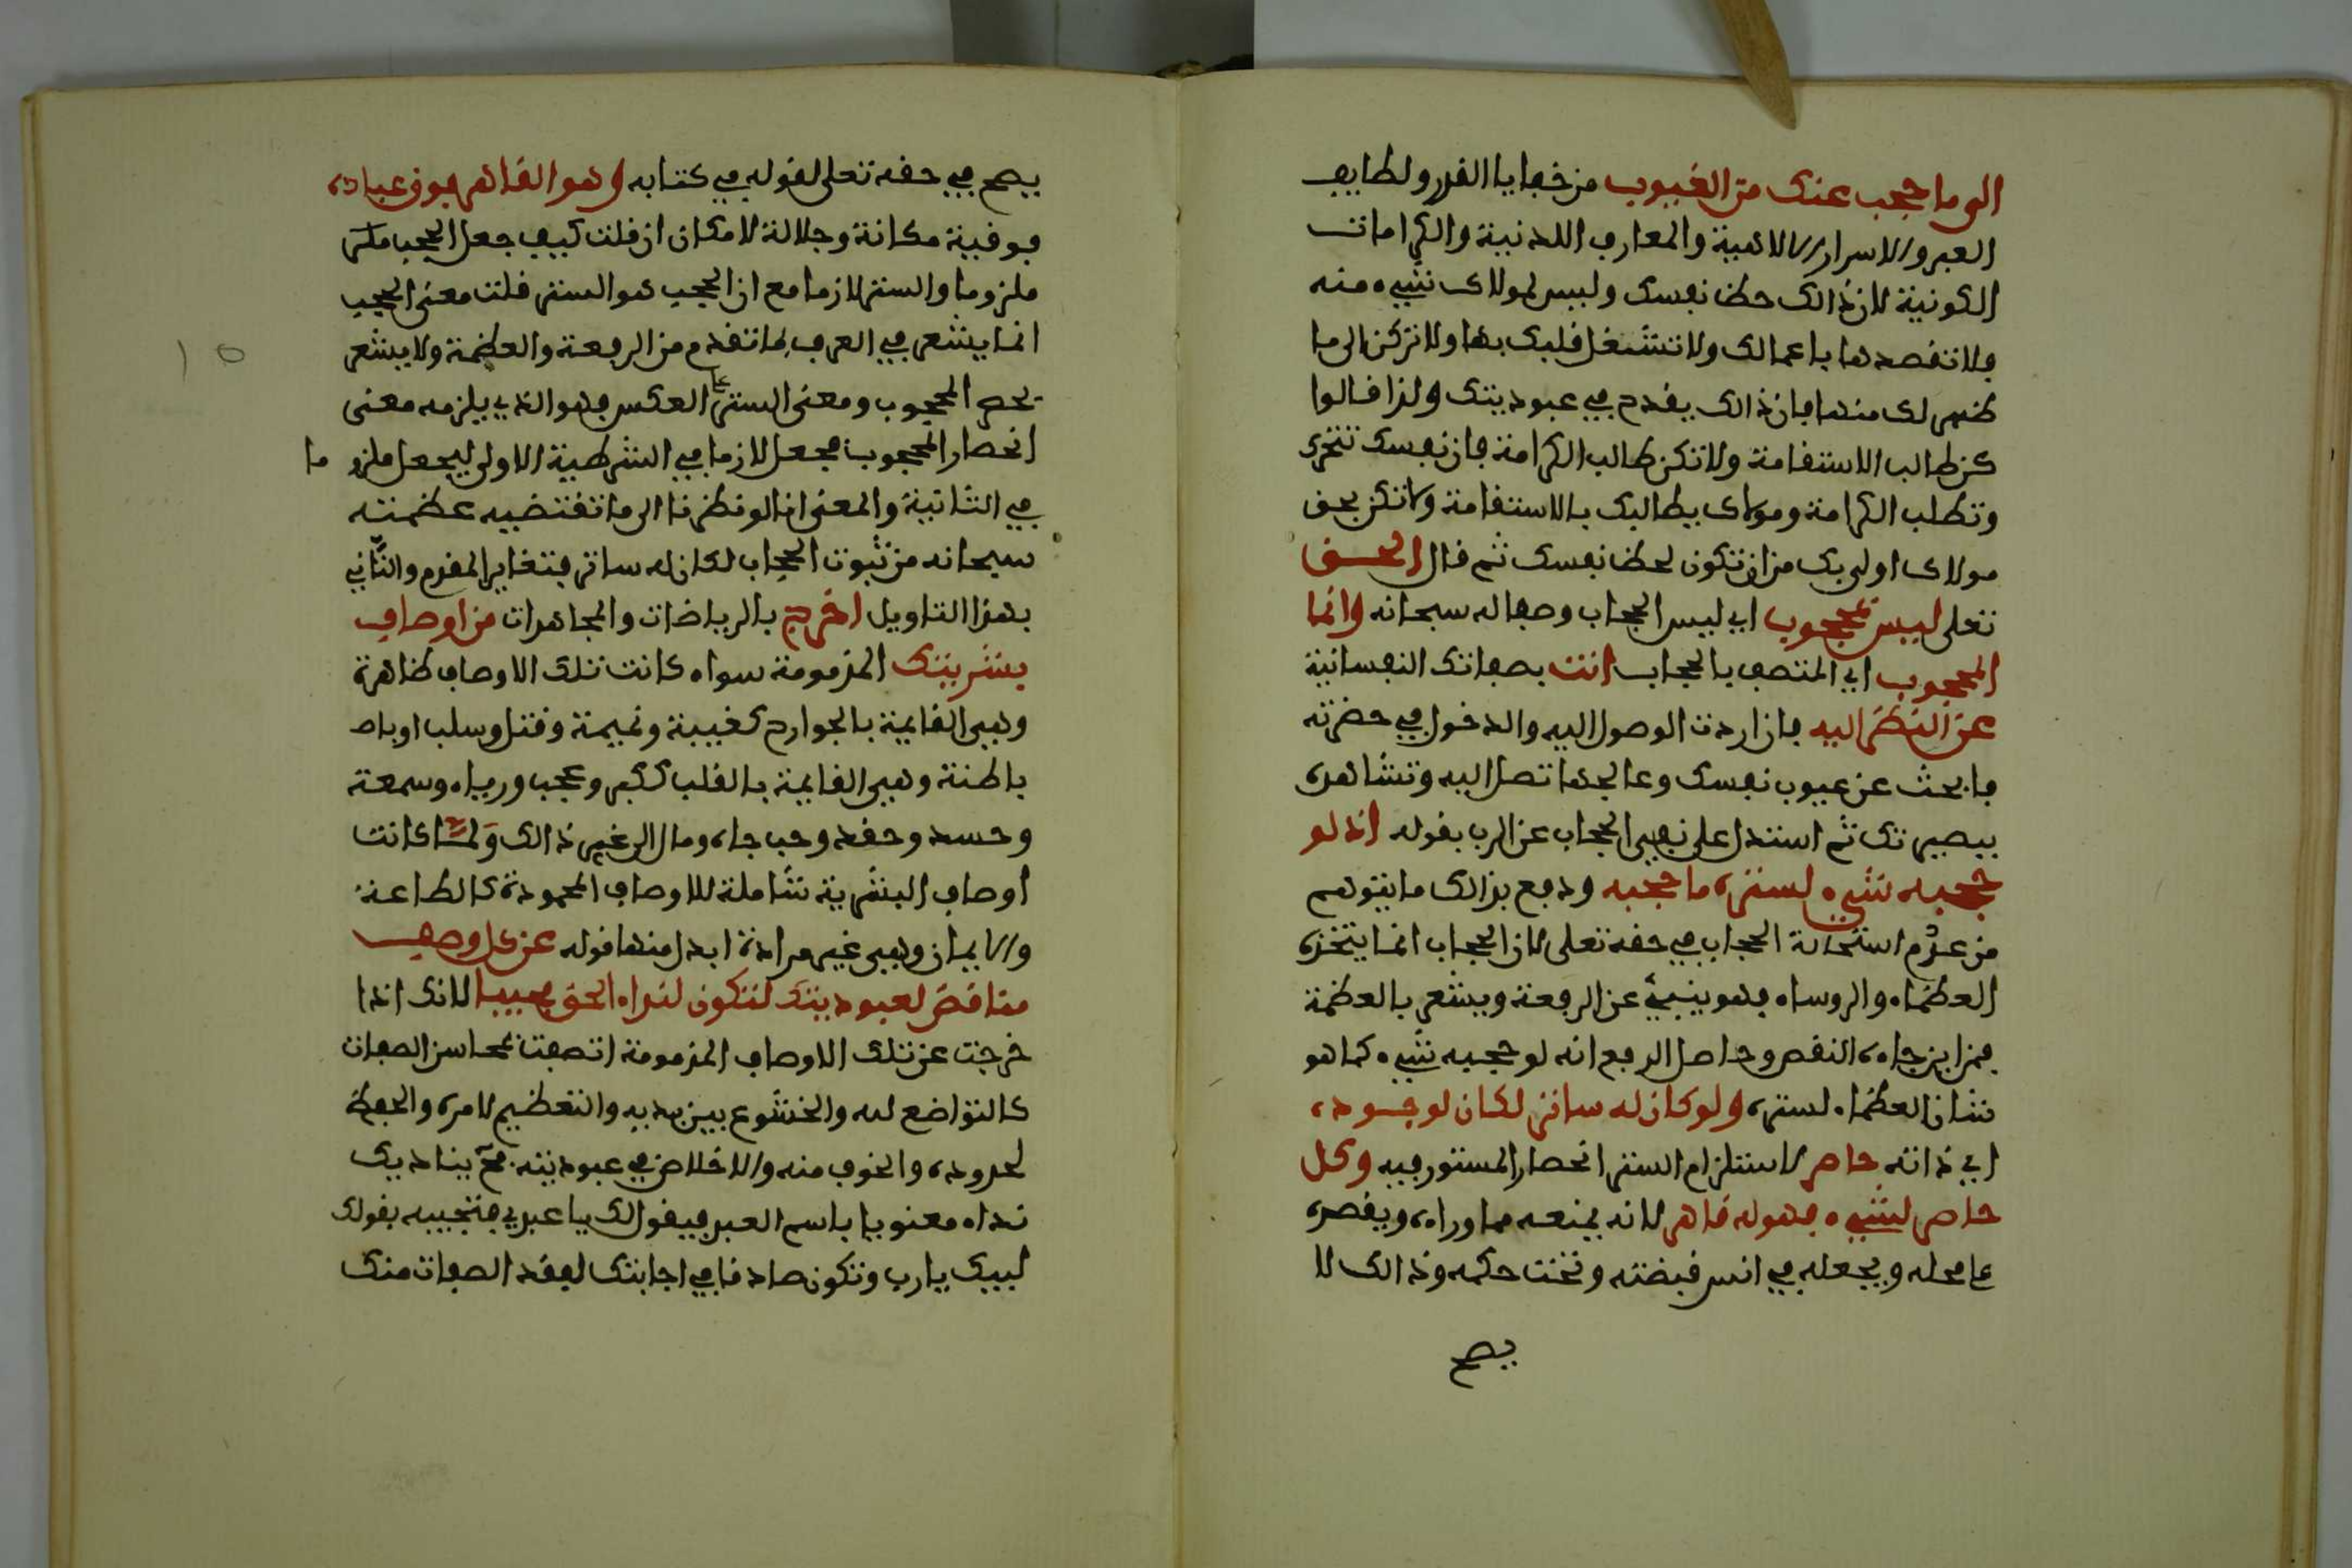 الى ما حجب عنك من الغيوب من خفايا القدر ولطايف
العبر والاسرار الالاهية والمعارف اللدنية والكرامات
الكونية لان ذالك حظ نفسك وليس لمولاك شيء منه
ولا تقصدها باعمالك ولا تشغل قلبك بها ولا تركن الى ما
ظهر لك منها فان ذالك يقدح في عبوديتك ولذا قالوا
كن طالب الاستقامة ولا تكن طالب الكرامة فان نفسك تتحرك
وتطلب الكرامة ومولاك يطالبك بالاستقامة ولا تكن بحق
مولاك اولى بك من ان تكون لحظ نفسك ثم قال الحق
تعلى ليس بمحجوب اي ليس الحجاب وصفا له سبحانه وانما
المحجوب اي المتصف بالحجاب انت بصفاتك النفسانية
عن النظر اليه فان اردت الوصول اليه والدخول في حضرته
فابحث عن عيوب نفسك وعالجها تصل اليه وتشاهده
ببصيرتك ثم استدل على نفي الحجاب عن الرب بقوله اذ لو
حجبه شيء لستره ما حجبه ودفع بذالك ما يتوهم
من عدم استحالة الحجاب في حقه تعلى لان الحجاب انما يتخذه
العظماء والروساء فهو ينبئ عن الرفعة ويشعر بالعظمة
فمن اين جاءه النقص وحاصل الدفع انه لو حجبه شيء كما هو
شان العظماء لستره ولو كان له ساتر لكان لوجوده
اي ذاته حاصر لاستلزام الستر انحصار المستور فيه وكل
حاصر لشيء فهو له قاهر لانه يمنعه مما وراءه ويقصره
على محله ويجعله في اسر قبضته وتحت حكمه وذالك لا
يصح
يصح في حقه تعلى لقوله في كتابه وهو القاهر فوق عباده
فوقية مكانة وجلالة لا مكان ان قلت كيف جعل الحجب
ملزوما والستر لازما مع ان الحجب هو الستر قلت معنى الحجب
انما يشعر في العرف بما تقدم من الرفعة والعظمة ولا يشعر
بحصر المحجوب ومعنى الستر على العكس فهو الذي يلزمه معنى
انحصار المحجوب فجعل لازما في الشرطية الاولى ليجعل ملزوما
في الثانية والمعنى انا لو نظرنا الى ما تقتضيه عظمته
سبحانه من ثبوت الحجاب لكان له ساتر فتغاير المقدم والثاني
بهذا التاويل اخرج بالرياضات والمجاهدات من اوصاف
بشريتك المذمومة سواء كانت تلك الاوصاف ظاهرة
وهي القايمة بالجوارح كغيبة ونميمة وقتل وسلب او
باطنة وهي القايمة بالقلب ككبر وعجب ورياء وسمعة
وحسد وحقد وحب جاه ومال الى غير ذالك ولما كانت
اوصاف البشرية شاملة للاوصاف المحمودة كالطاعة
والايمان وهي غير مرادة ابدل منها قوله عن كل وصف
مناقض لعبوديتك لتكون لنداء الحق مجيبا لانك اذا
خرجت عن تلك الاوصاف المذمومة اتصفت بمحاسن الصفات
كالتواضع لله والخشوع بين يديه والتعظيم لامره والحفظ
لحدوده والخوف منه والاخلاص في عبوديته يناديك
نداء معنويا باسم العبد فيقول لك يا عبدي فتجيبه بقولك
لبيك يا رب وتكون صادقا في اجابتك لفقد الصفات منك
10